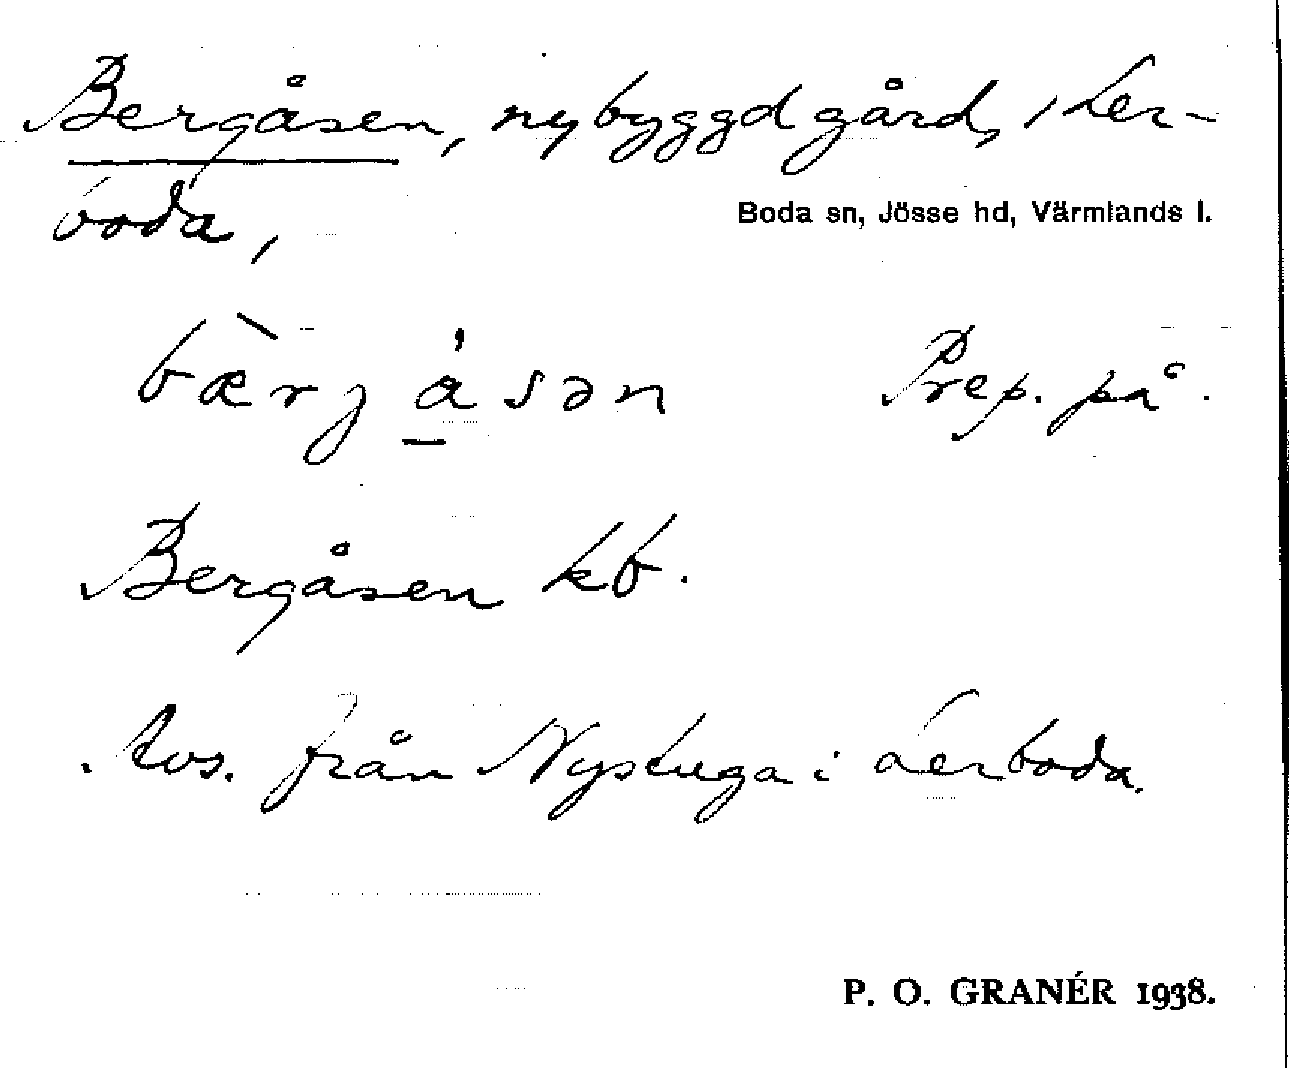 Bergåsen, nybyggd gård, i Ler-
boda,
Boda sn, Jösse hd, Värmlands l.
bæ̀rjåsən Prep. på.
Bergåsen kb.
Avs. från Nystuga i Lerboda.
P. O. GRANÉR 1938.